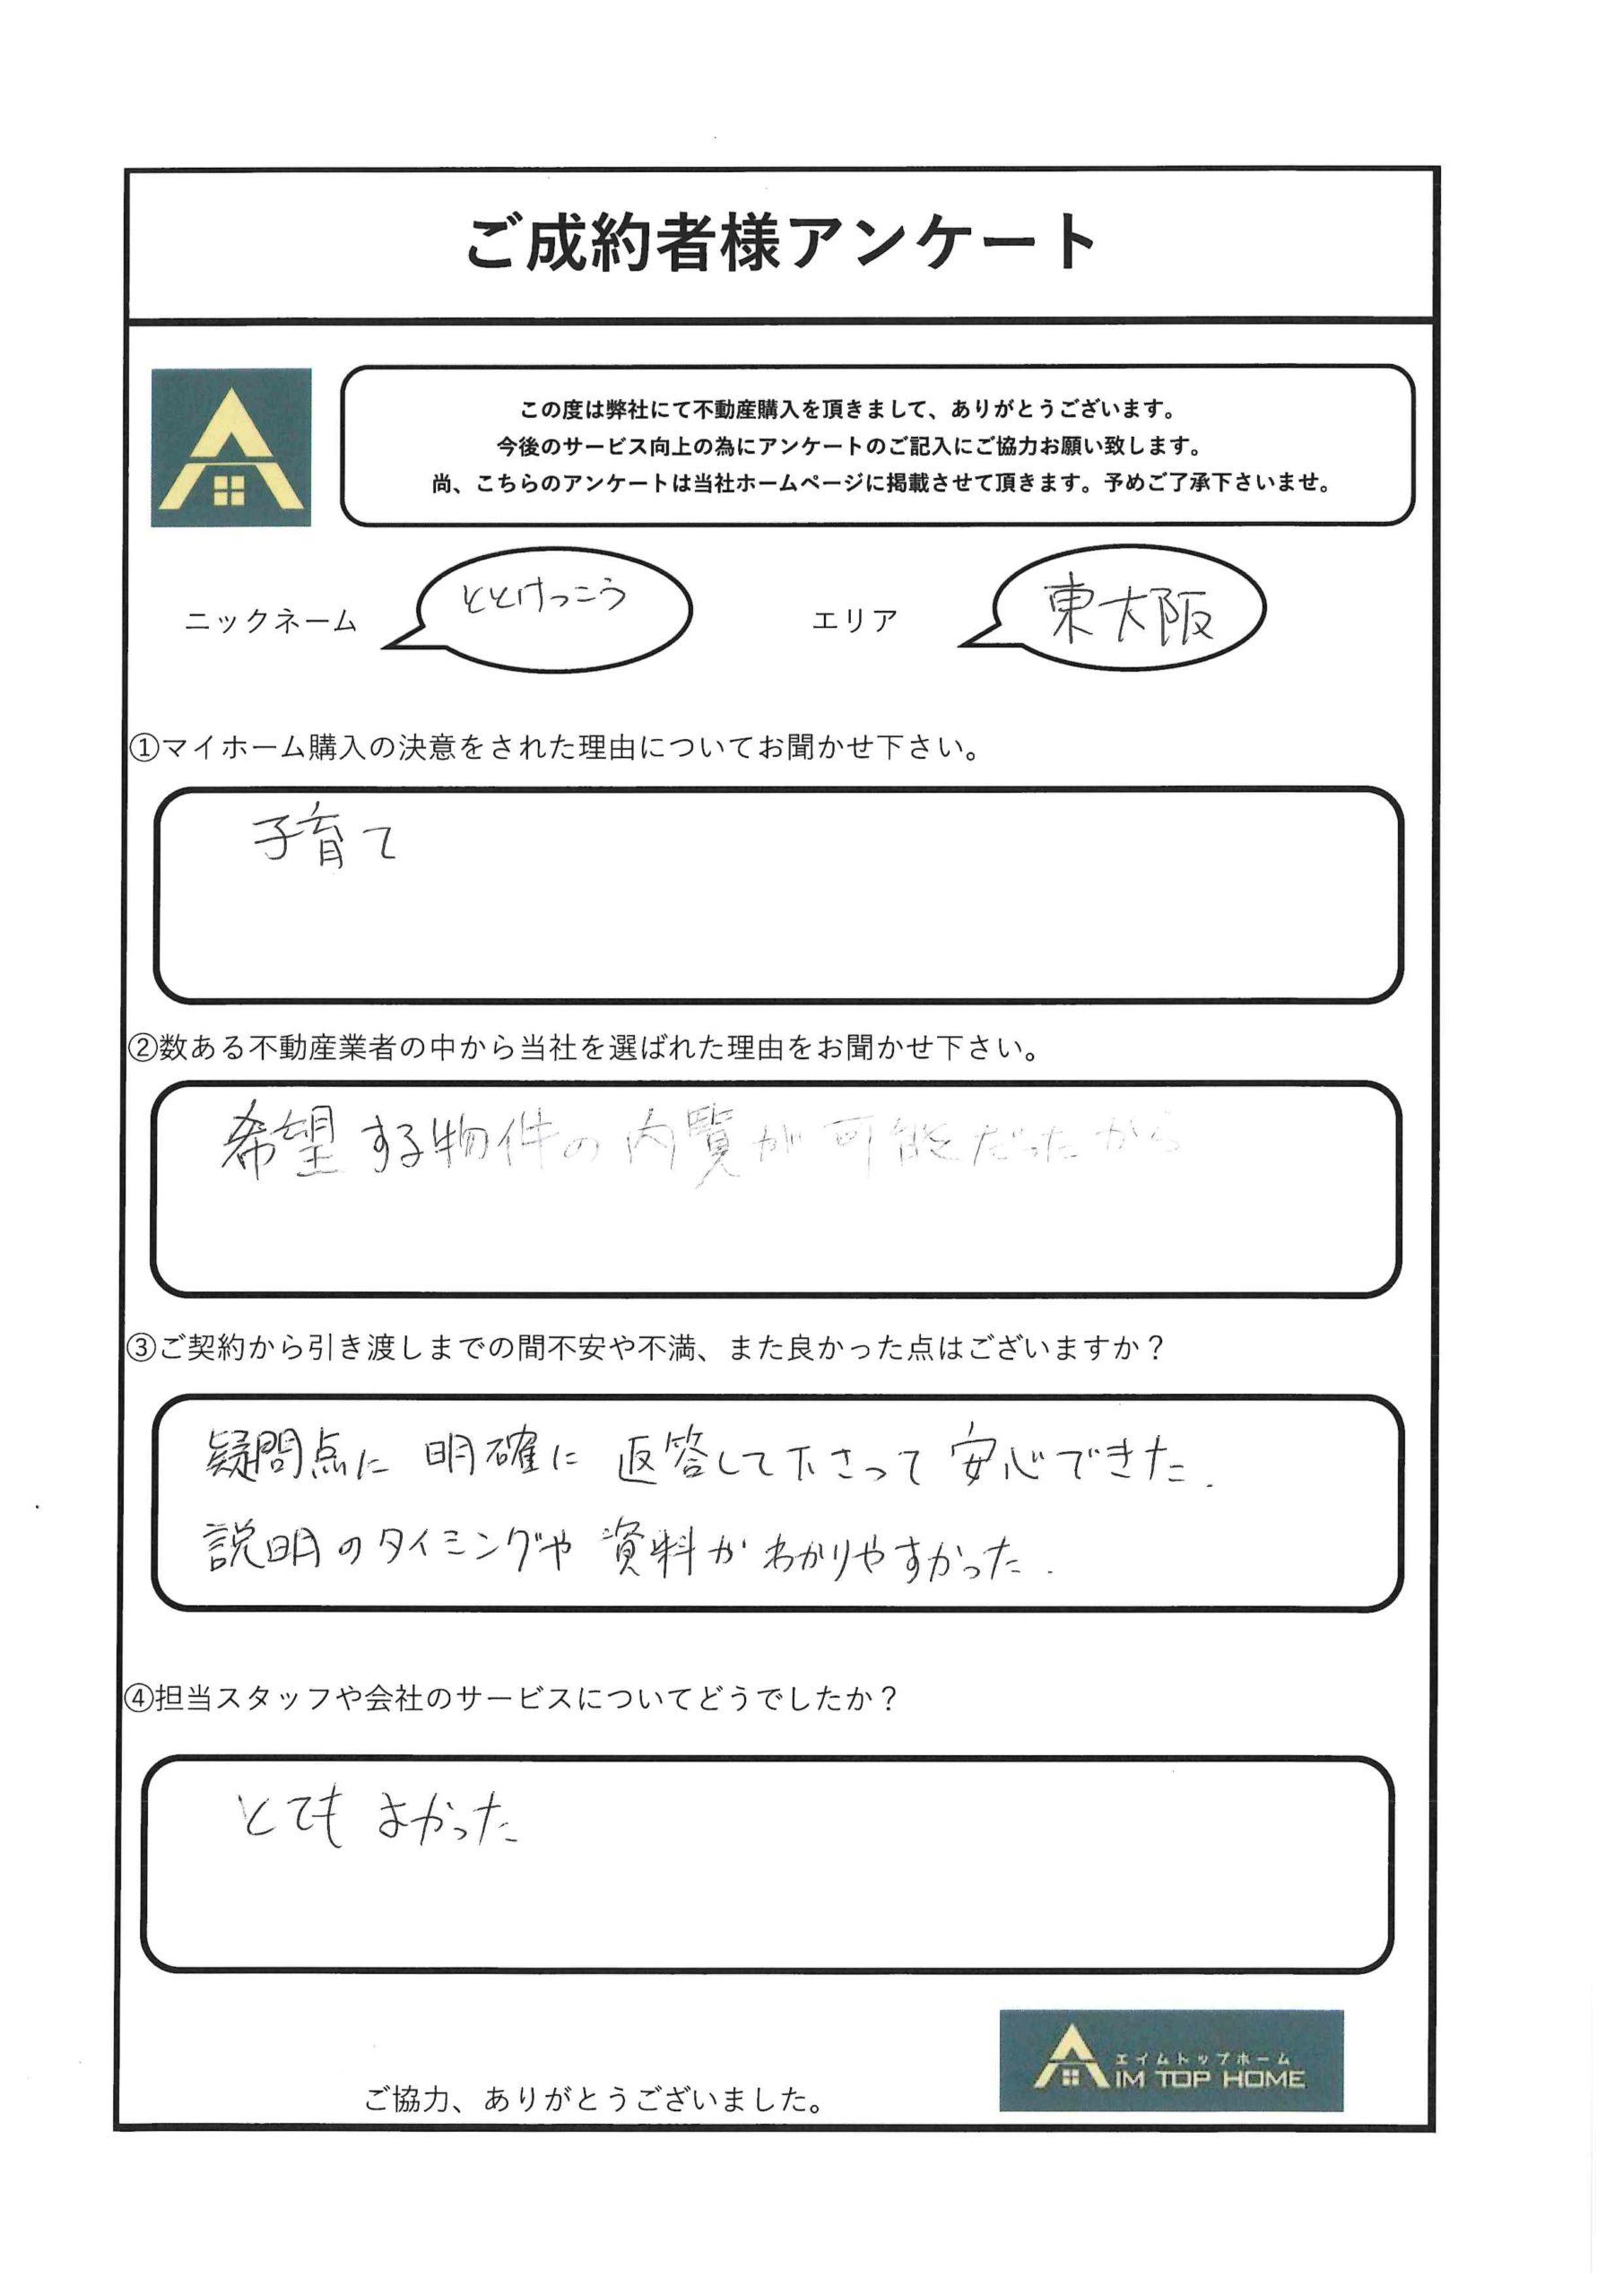 ご成約者様アンケート
この度は弊社にて不動産購入を頂きまして、ありがとうございます。
今後のサービス向上の為にアンケートのご記入にご協力お願い致します。
尚、こちらのアンケートは当社ホームページに掲載させて頂きます。予めご了承下さいませ。
ニックネーム ととけっこう エリア 東大阪
①マイホーム購入の決意をされた理由についてお聞かせ下さい。
子育て
②数ある不動産業者の中から当社を選ばれた理由をお聞かせ下さい。
希望する物件の内覧が可能だったから
③ご契約から引き渡しまでの間不安や不満、また良かった点はございますか？
疑問点に明確に返答して下さって安心できた.
説明のタイミングや資料がわかりやすかった.
④担当スタッフや会社のサービスについてどうでしたか？
とてもよかった
エイムトップホーム
AIM TOP HOME
ご協力、ありがとうございました。